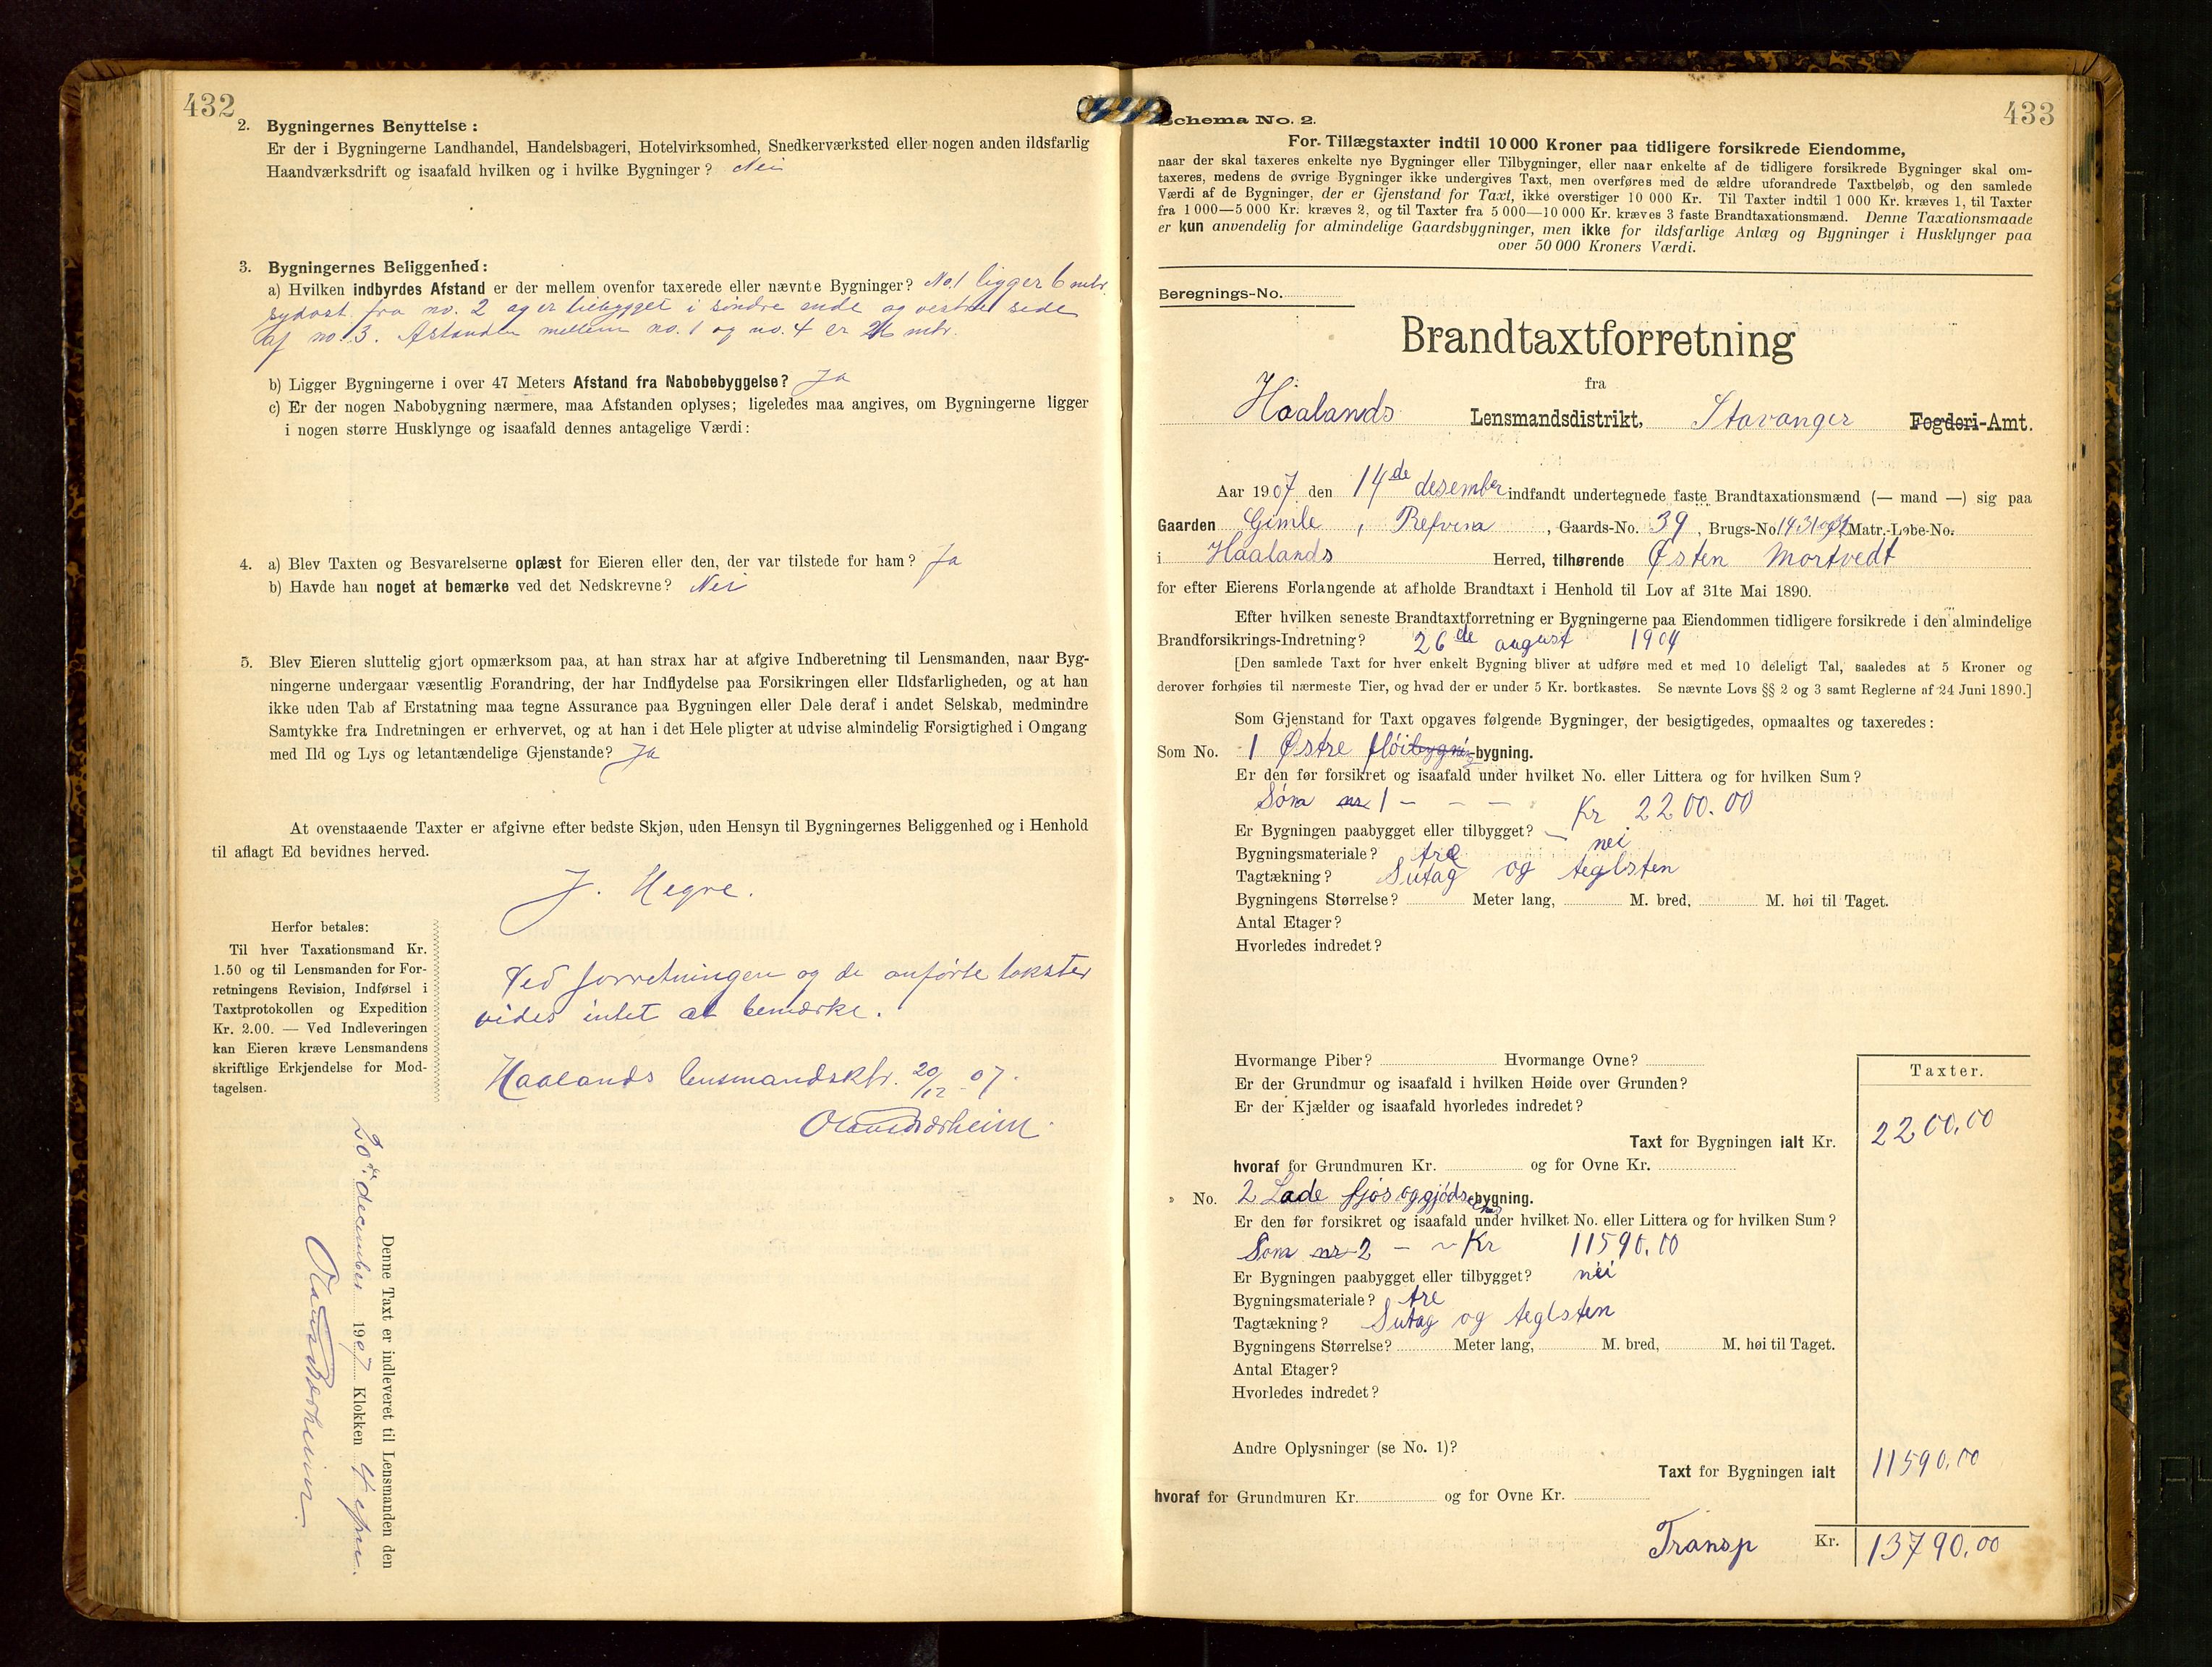 432
2. Bygningernes Benyttelse :
Er der i Bygningerne Landhandel, Handelsbageri, Hotelvirksomhed, Snedkerværksted eller nogen anden ildsfarlig
Haandværksdrift og isaafald hvilken og i hvilke Bygninger ? Nei
3. Bygningernes Beliggenhed :
a) Hvilken indbyrdes Afstand er der mellem ovenfor taxerede eller nævnte Bygninger ? No. 1 ligger 6 mtr.
sydost fra no. 2 og er tilbygget i søndre ende og vestre side
af no. 3. Afstanden mellem no. 1 og no. 4 er 26 mtr.
b) Ligger Bygningerne i over 47 Meters Afstand fra Nabobebyggelse ? Ja
c) Er der nogen Nabobygning nærmere, maa Afstanden oplyses; ligeledes maa angives, om Bygningerne ligger
i nogen større Husklynge og isaafald dennes antagelige Værdi :
4. a) Blev Taxten og Besvarelserne oplæst for Eieren eller den, der var tilstede for ham ? Ja
b) Havde han noget at bemærke ved det Nedskrevne ? Nei
5. Blev Eieren sluttelig gjort opmærksom paa, at han strax har at afgive Indberetning til Lensmanden, naar Byg-
ningerne undergaar væsentlig Forandring, der har Indflydelse paa Forsikringen eller Ildsfarligheden, og at han
ikke uden Tab af Erstatning maa tegne Assurance paa Bygningen eller Dele deraf i andet Selskab, medmindre
Samtykke fra Indretningen er erhvervet, og at han i det Hele pligter at udvise almindelig Forsigtighed i Omgang
med Ild og Lys og letantændelige Gjenstande ? Ja
At ovenstaaende Taxter er afgivne efter bedste Skjøn, uden Hensyn til Bygningernes Beliggenhed og i Henhold
til aflagt Ed bevidnes herved.
J. Hegre.
Herfor betales:
Til hver Taxationsmand Kr.
1.50 og til Lensmanden for For-
retningens Revision, Indførsel i
Taxtprotokollen og Expedition
Kr. 2.00. — Ved Indleveringen
kan Eieren kræve Lensmandens
skriftlige Erkjendelse for Mod-
tagelsen.
Ved forretningen og de anførte takster
vides intet at bemærke.
Haalands lensmandsktr. 20/12 07.
Denne Taxt er indleveret til Lensmanden den
20de december 1907 Klokken 4 efm.
433
Schema No. 2.
For Tillægstaxter indtil 10 000 Kroner paa tidligere forsikrede Eiendomme,
naar der skal taxeres enkelte nye Bygninger eller Tilbygninger, eller naar enkelte af de tidligere forsikrede Bygninger skal om-
taxeres, medens de øvrige Bygninger ikke undergives Taxt, men overføres med de ældre uforandrede Taxtbeløb, og den samlede
Værdi af de Bygninger, der er Gjenstand for Taxt, ikke overstiger 10 000 Kr. Til Taxter indtil 1 000 Kr. kræves 1, til Taxter
fra 1 000—5 000 Kr. kræves 2, og til Taxter fra 5 000—10 000 Kr. kræves 3 faste Brandtaxationsmænd. Denne Taxationsmaade
er kun anvendelig for almindelige Gaardsbygninger, men ikke for ildsfarlige Anlæg og Bygninger i Husklynger paa
over 50 000 Kroners Værdi.
Beregnings-No.
Brandtaxtforretning
fra
Haalands Lensmandsdistrikt, Stavanger Fogderi-Amt.
Aar 1907 den 14de desember indfandt undertegnede faste Brandtaxationsmænd (— mand —) sig paa
Gaarden Gimle, Refvem, Gaards-No. 39, Brugs-No. Matr.-Løbe-No.
i Haalands Herred, tilhørende Østen Mortvedt
for efter Eierens Forlangende at afholde Brandtaxt i Henhold til Lov af 31te Mai 1890.
Efter hvilken seneste Brandtaxtforretning er Bygningerne paa Eiendommen tidligere forsikrede i den almindelige
Brandforsikrings-Indretning ? 26de august 1904
[Den samlede Taxt for hver enkelt Bygning bliver at udføre med et med 10 deleligt Tal, saaledes at 5 Kroner og
derover forhøies til nærmeste Tier, og hvad der er under 5 Kr. bortkastes. Se nævnte Lovs §§ 2 og 3 samt Reglerne af 24 Juni 1890.]
Som Gjenstand for Taxt opgaves følgende Bygninger, der besigtigedes, opmaaltes og taxeredes :
Som No. 1 Østre fløibygning-bygning.
Er den før forsikret og isaafald under hvilket No. eller Littera og for hvilken Sum ?
Som nr 1 - - - Kr 2200.00
Er Bygningen paabygget eller tilbygget ? nei
Bygningsmateriale ? træ
Tagtækning ? Sutag og teglsten
Bygningens Størrelse ? Meter lang, M. bred, M. høi til Taget.
Antal Etager ?
Hvorledes indredet ?
Hvormange Piber ? Hvormange Ovne ?
Er der Grundmur og isaafald i hvilken Høide over Grunden ?
Er der Kjælder og isaafald hvorledes indredet ?
Taxter.
Taxt for Bygningen ialt Kr. 2200.00
hvoraf for Grundmuren Kr. og for Ovne Kr.
» No. 2 Lade fjøs og gjødselhus-bygning.
Er den før forsikret og isaafald under hvilket No. eller Littera og for hvilken Sum ?
Som nr 2 - ~ Kr 11590.00
Er Bygningen paabygget eller tilbygget ? nei
Bygningsmateriale ? tre
Tagtækning ? Sutag og teglsten
Bygningens Størrelse ? Meter lang, M. bred, M. høi til Taget.
Antal Etager ?
Hvorledes indredet ?
Andre Oplysninger (se No. 1) ?
Taxt for Bygningen ialt 11590.00
hvoraf for Grundmuren Kr. og for Ovne Kr.
Transp Kr. 13790.00